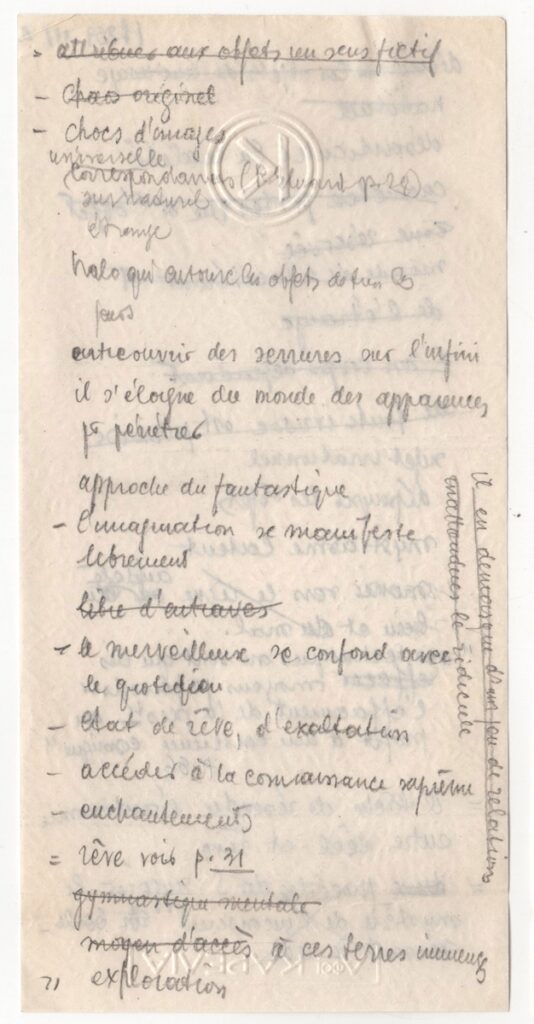 = attribuer aux objets un sens fictif
- chaos originel
- chocs d'images
universelle
correspondances (p. 28)
surnaturel
étrange
halo qui entoure les objets
entrouvrir des serrures sur l'infini
il s'éloigne du monde des apparences
pr pénétrer
approche du fantastique
- l'imagination se manifeste
librement
libre d'entraves
- le merveilleux se confond avec
le quotidien
- état de rêve, d'exaltation
- accéder à la connaissance suprême
- enchantement
= rêve voir p. 31
gymnastique mentale
moyen d'accès à ces terres immenses
exploration
il en démasque dans un jeu de relations
inattendues le ridicule